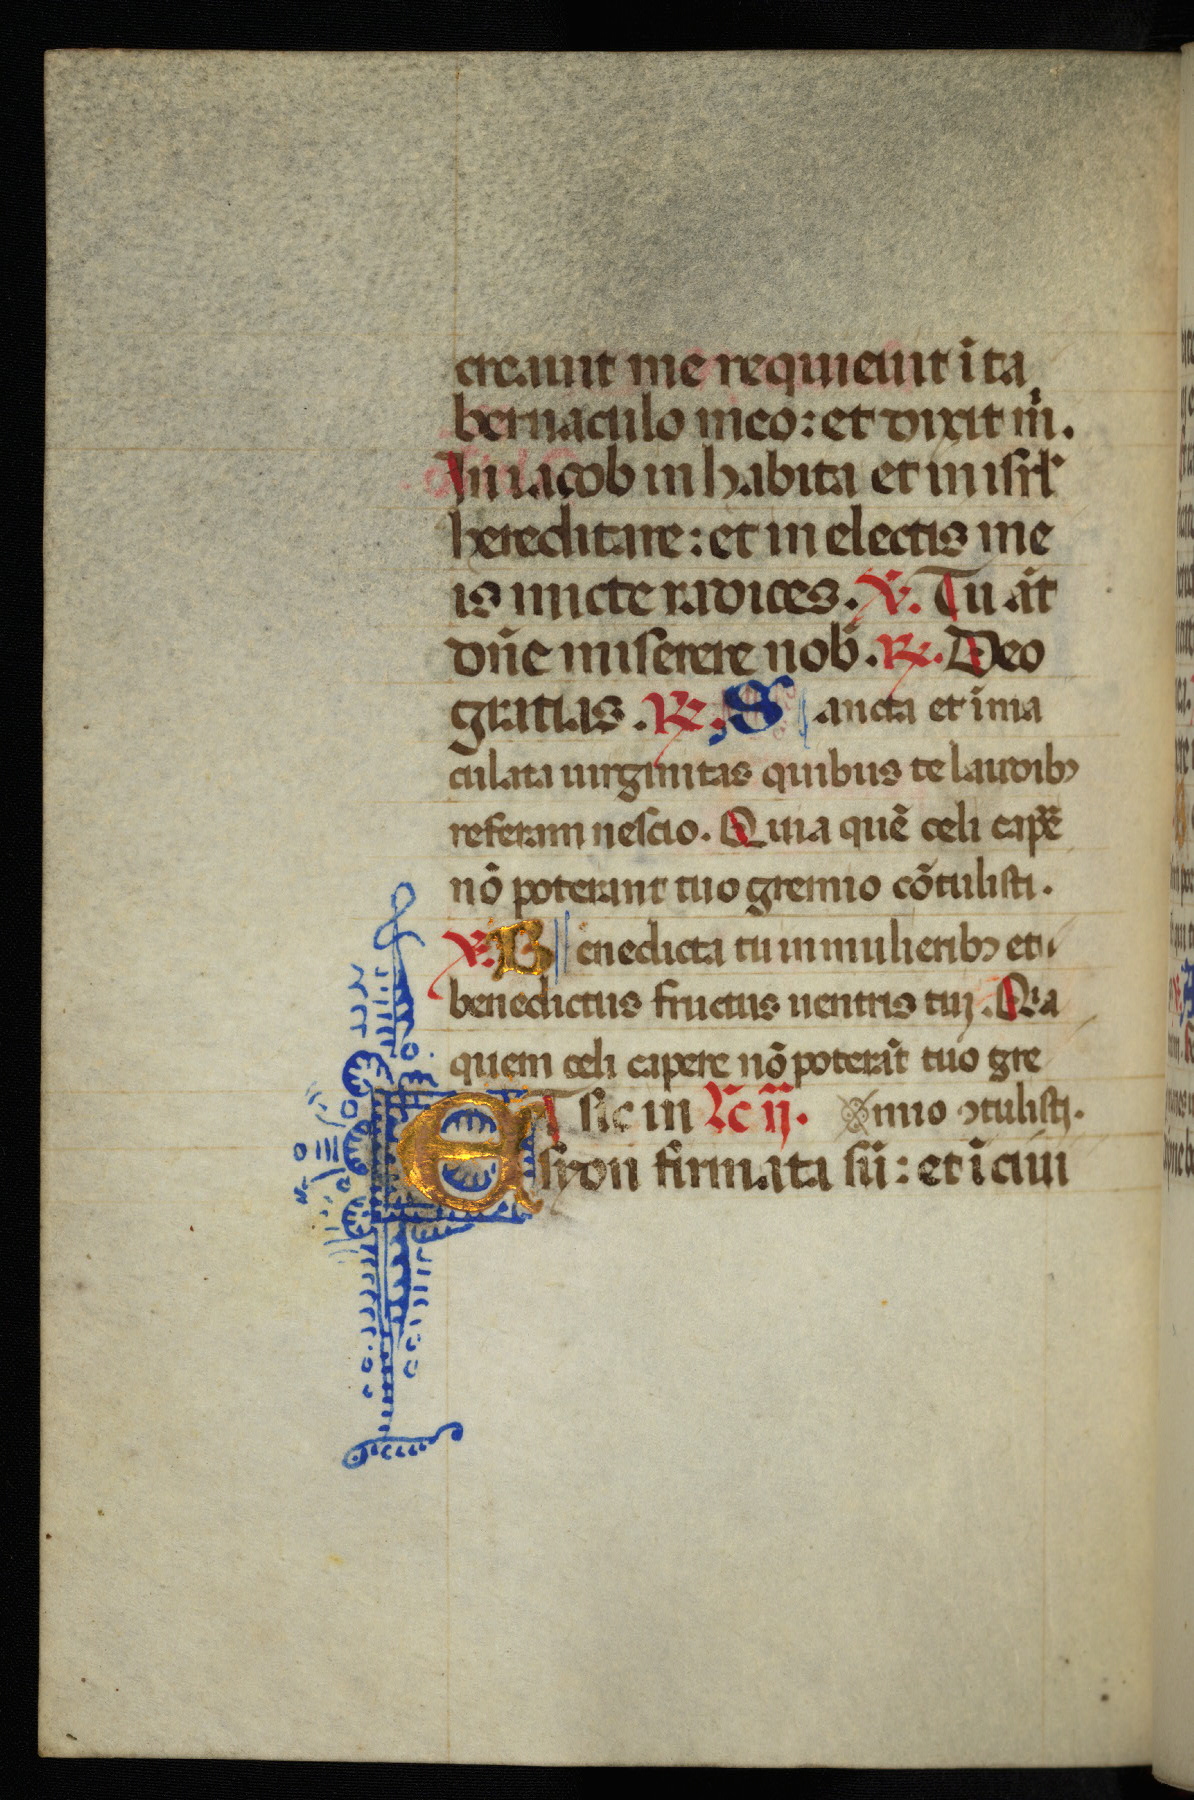 creauit me requieuit ī ta
bernaculo meo: et dixit m̄.
In iacob inhabita et in isrl̄
hereditare: et in electis me
is micte radices. ℣. Tu āt
dn̄e miserere nob̄. ℟. Deo
gratias. ℟. Sancta et īma
culata uirginitas quibus te laudibꝰ
referam nescio. Quia quē celi cape
nō poterant tuo gremio cōtulisti.
℣. Benedicta tu in mulieribꝰ et
benedictus fructus uentris tuj. Qia
quem celi capere nō poterāt tuo gre
ET sic in Lc̄ ij. mio ꝯtulistj.
syon firmata sū: et ī ciui